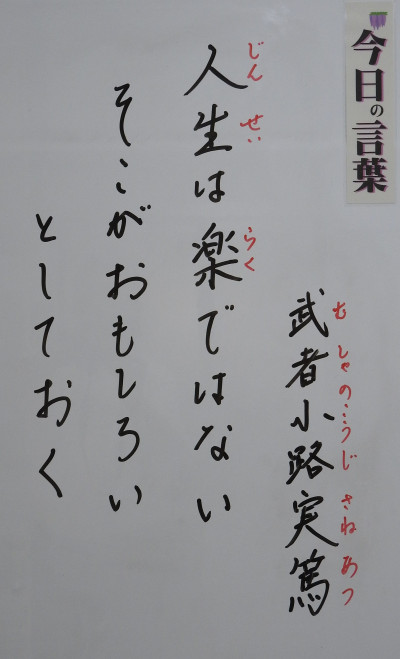 今日の言葉
武者小路実篤
むしゃのこうじ さねあつ
人生は楽ではない
じん せい らく
そこがおもしろい
としておく